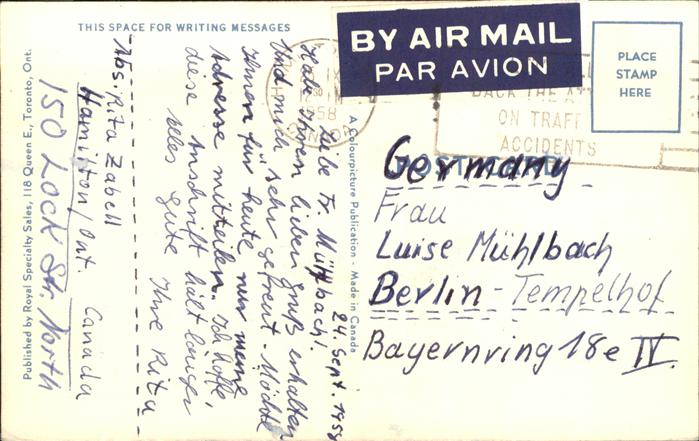 THIS SPACE FOR WRITING MESSAGES
24. Sept. 1958
Liebe Fr. Mühlbach!
Habe Ihren lieben Gruß erhalten
und mich sehr gefreut. Möchte
Ihnen für heute nur meine
Adresse mitteilen. Ich hoffe,
diese Anschrift hält länger
alles Gute Ihre Rita
Abs: Rita Zabell
Hamilton/Ont.
Canada
150 LOCK Str. North
Published by Royal Specialty Sales, 118 Queen E., Toronto, Ont.
A Colourpicture Publication - Made in Canada
BY AIR MAIL
PAR AVION
PLACE
STAMP
HERE
IX
1958
CANADA
BACK THE ATT
ON TRAFF
ACCIDENTS
POST CARD
Germany
Frau
Luise Mühlbach
Berlin - Tempelhof
Bayernring 18e IV.